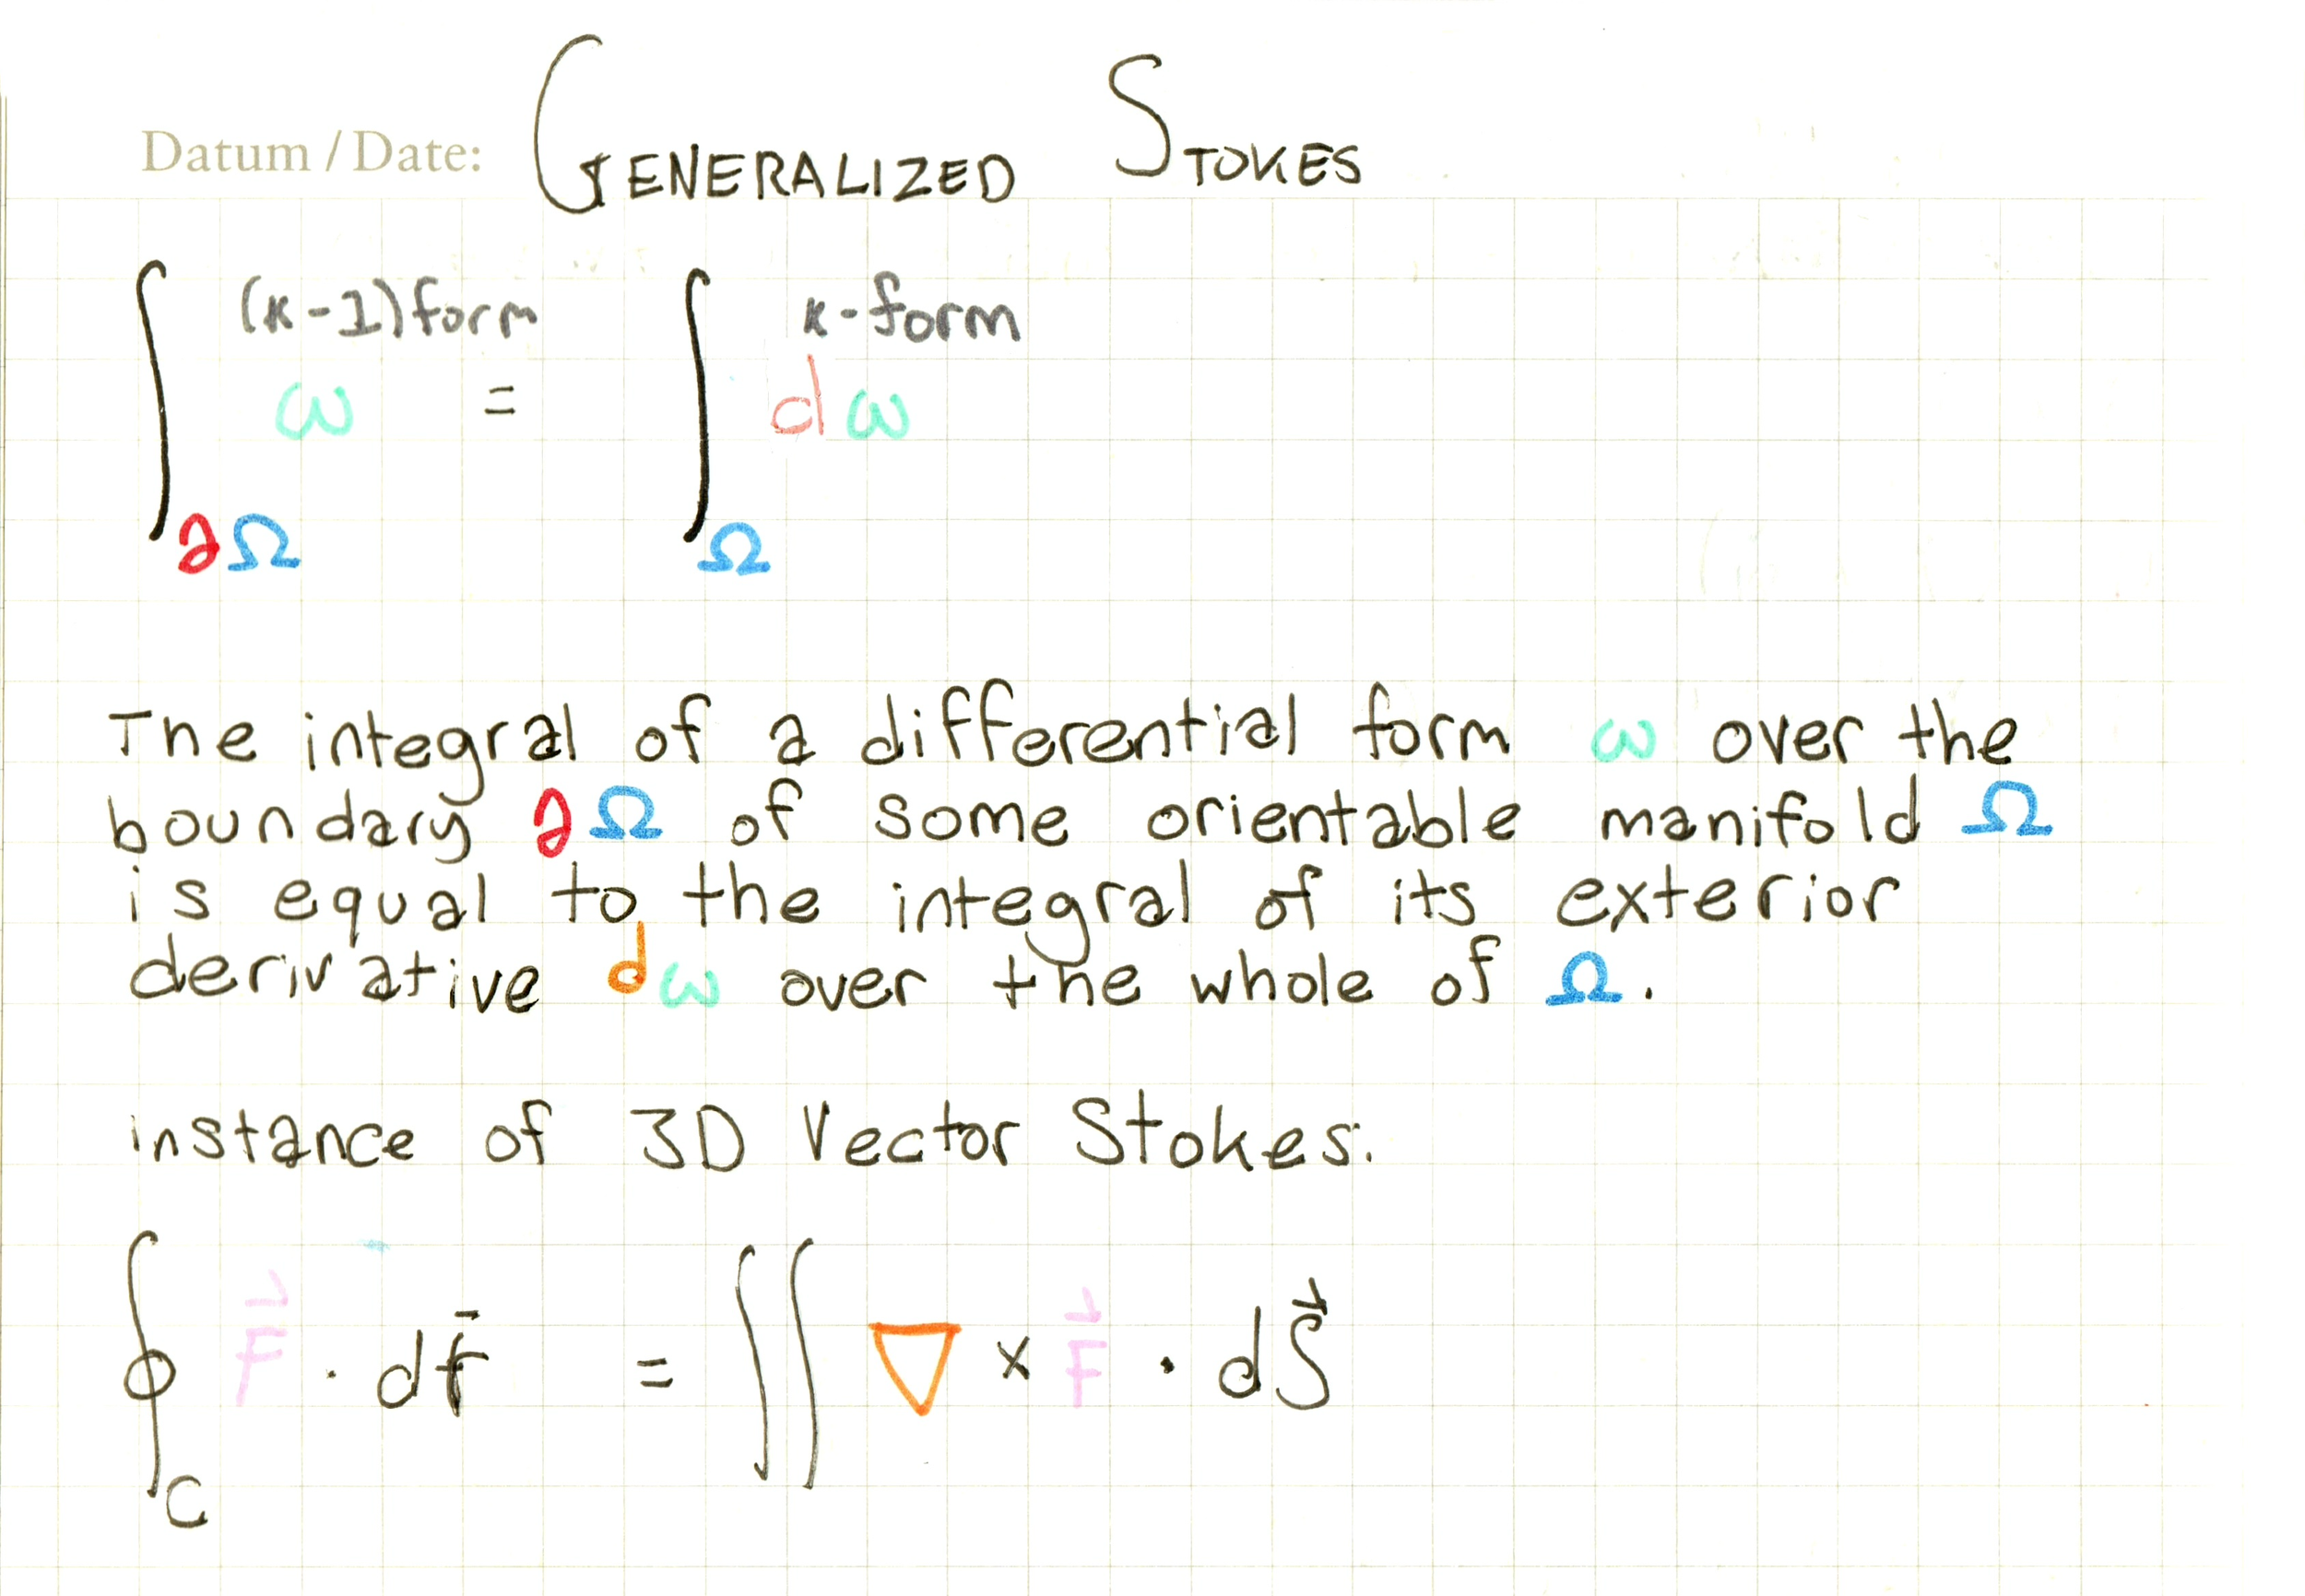 Datum / Date: GENERALIZED STOKES
(k-1) form k-form
∫_∂Ω ω = ∫_Ω dω
The integral of a differential form ω over the
boundary ∂Ω of some orientable manifold Ω
is equal to the integral of its exterior
derivative dω over the whole of Ω.
instance of 3D Vector Stokes:
∮_C F⃗ · dr̄ = ∬ ∇ × F⃗ · dS⃗